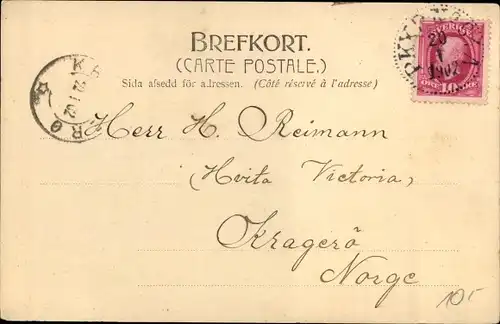 BREFKORT.
(CARTE POSTALE.)
Sida afsedd för adressen. (Côté réservé à l'adresse)
SVERIGE
20
1
1902
10
22 1 02
Herr H. Reimann
(Hvita Victoria)
Kragerö
Norge
10-